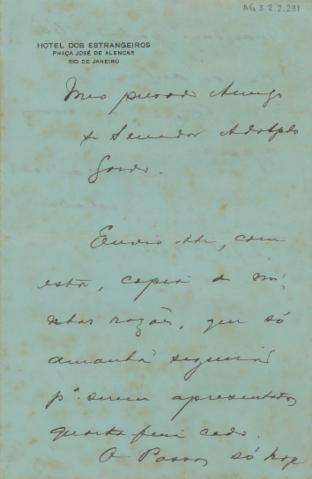 AG 3.2.2.231
HOTEL DOS ESTRANGEIROS
PRAÇA JOSÉ DE ALENCAR
RIO DE JANEIRO
Meu prezado Amigo
Sr Senador Adolpho
Gordo.
Envio-lhe, com
esta, copia de mi-
nhas razões, que só
amanhã seguirão
pª. serem apresentadas
quarta feira cedo.
O Passos só hoje